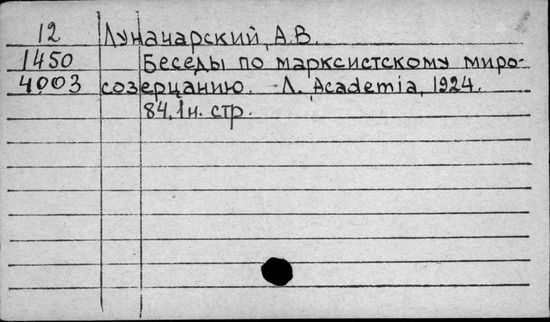 12 Луначарский, А.В.
1450 Беседы по марксистскому миро-
4003 созерцанию. Л. Academia, 1924.
84, 1 н. стр.